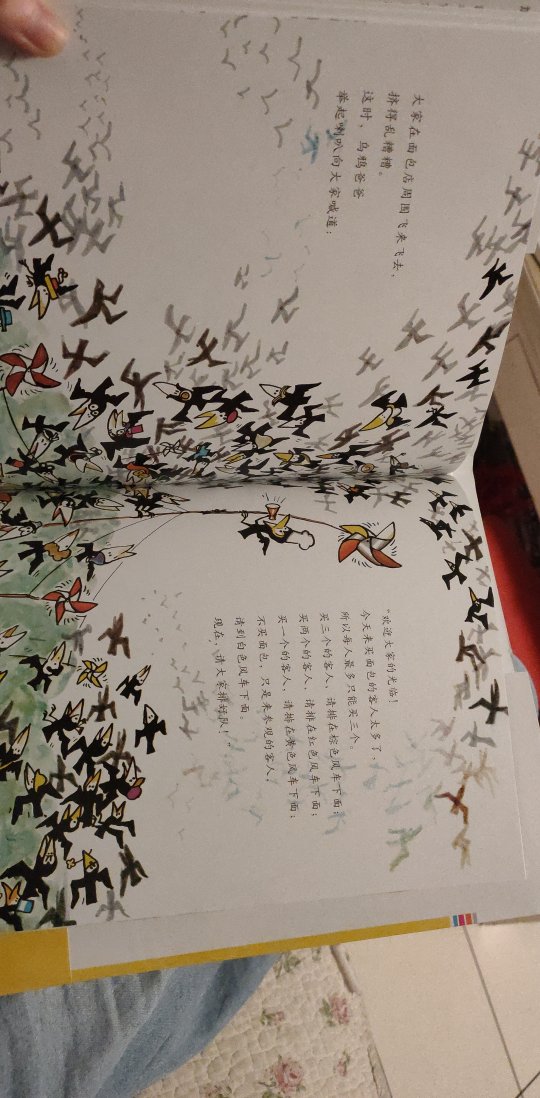 大家在面包店周围飞来飞去，
挤得乱糟糟。
这时，乌鸦爸爸
举起喇叭向大家喊道：
“欢迎大家的光临！
今天来买面包的客人太多了，
所以每人最多只能买三个。
买三个的客人，请排在棕色风车下面；
买两个的客人，请排在红色风车下面；
买一个的客人，请排在黄色风车下面；
不买面包，只是来参观的客人，
请到白色风车下面。
现在，请大家排好队！”